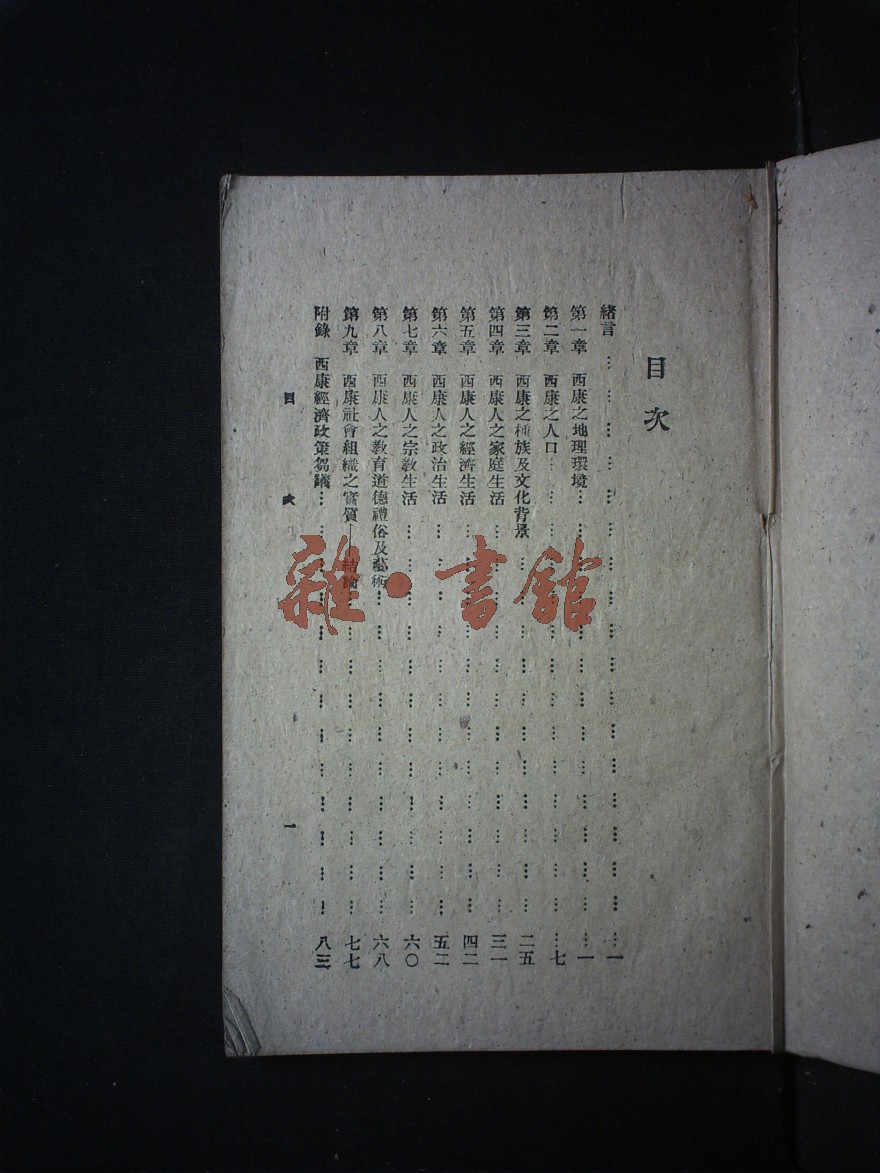 目次
緒言……………………一
第一章　西康之地理環境……………………一
第二章　西康之人口……………………七
第三章　西康之種族及文化背景……………………二五
第四章　西康人之家庭生活……………………三一
第五章　西康人之經濟生活……………………四二
第六章　西康人之政治生活……………………五二
第七章　西康人之宗教生活……………………六〇
第八章　西康人之教育道德禮俗及藝術……………………六八
第九章　西康社會組織之實質——結論……………………七七
附錄　西康經濟政策芻議……………………八三
目次　一
雜·書館